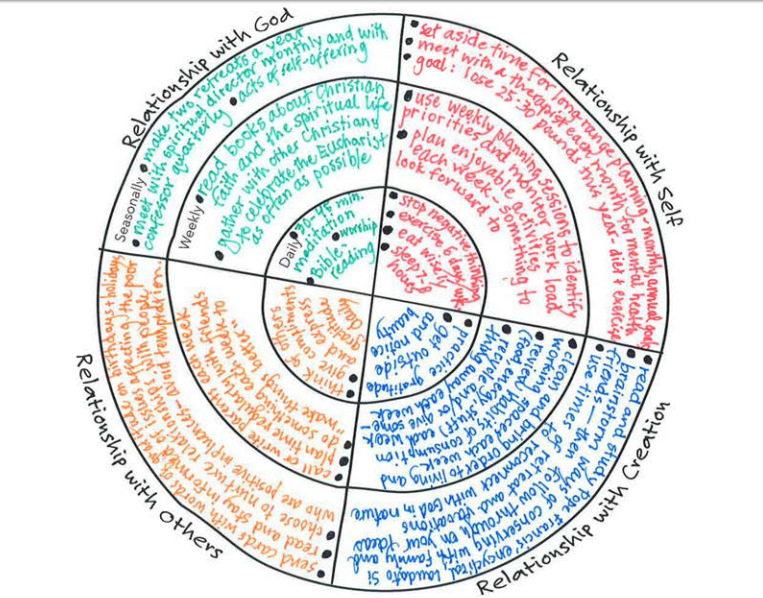 Relationship with God
Seasonally
• make two retreats a year
• meet with spiritual director monthly and with
confessor quarterly • acts of self-offering
Weekly
• read books about Christian
faith and the spiritual life
• gather with other Christians
to celebrate the Eucharist
as often as possible
Daily
• 30-45 min.
meditation
• worship
• Bible
reading
Relationship with Self
• set aside time for long-range planning - monthly, annual goals
• meet with a therapist each month for mental health
• goal: lose 25-30 pounds this year - diet + exercise
• use weekly planning sessions to identify
priorities and monitor work load
• plan enjoyable activities
each week - something to
look forward to
• stop negative thinking
• exercise 5 days/wk
• eat wisely
• sleep 7-8
hours
Relationship with Creation
• read and study Pope Francis' encyclical Laudato Si
• brainstorm ways of conserving with family and
friends — then follow through on your ideas
• use times of retreat and vacations
to reconnect with God in nature
• clean and bring order to living and
working spaces each week
• remedy habits of consumption
(food, energy, stuff) each week
• recycle and/or give some-
thing away each week
• practice gratitude
• get outside
and notice
beauty
Relationship with Others
• send cards with words of gratitude on birthdays + holidays
• read and stay informed of issues affecting the poor
• choose to nurture relationships with people
who are positive influences - avoid temptation.
• call or write parent each week
• plan time regularly with friends
• do something each week to
"make things better"
• think of others
• give compliments
and express
gratitude
daily